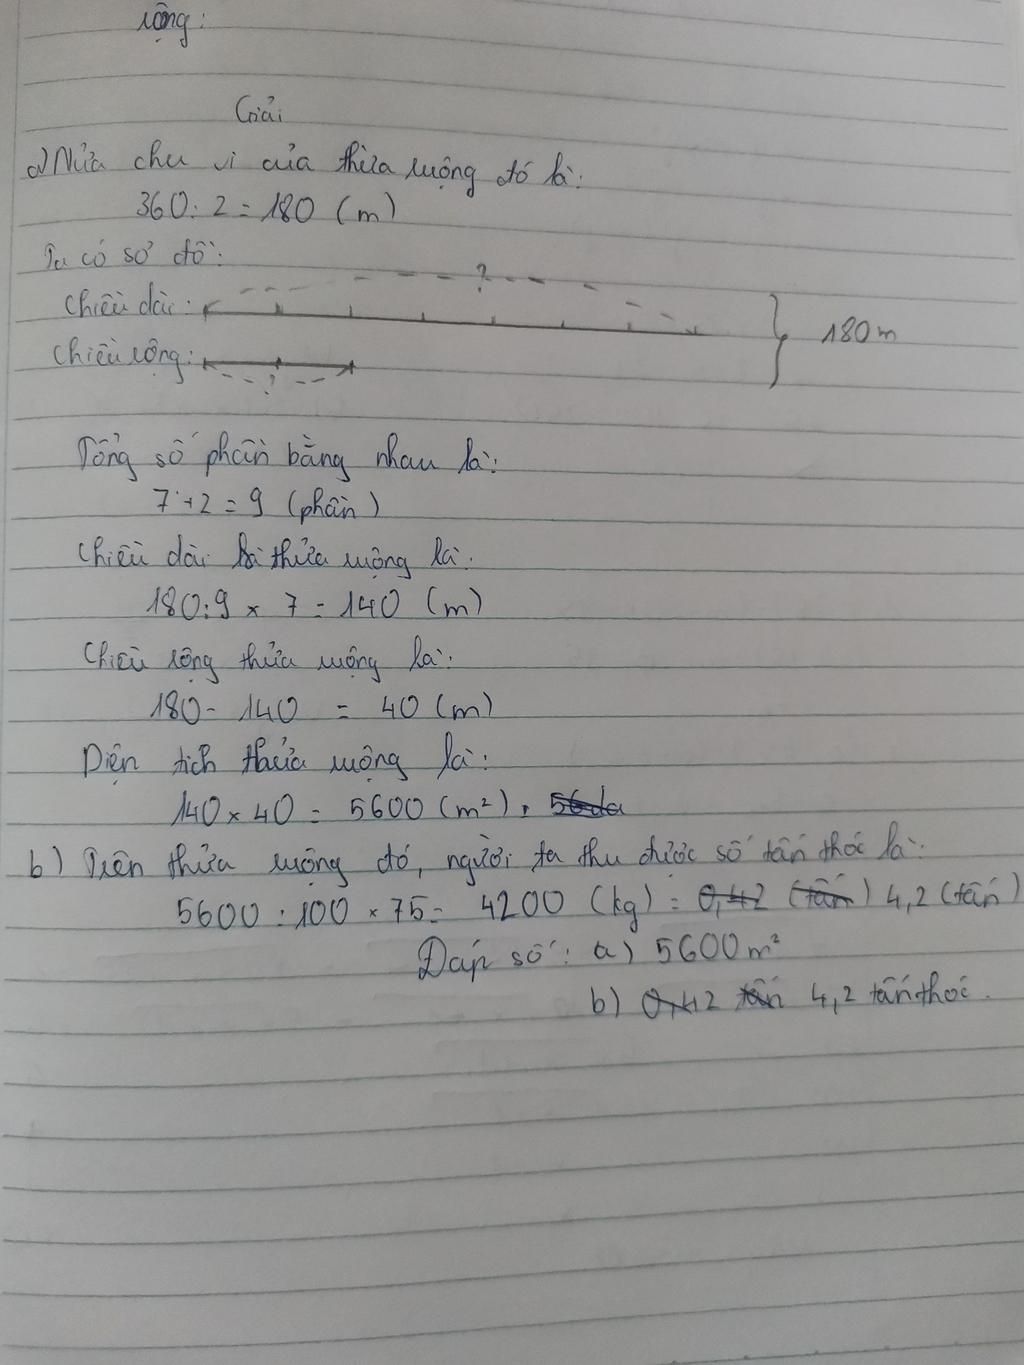 rộng:
Giải
a) Nửa chu vi của thửa ruộng đó là:
360 : 2 = 180 (m)
Ta có sơ đồ:
?
Chiều dài:
180 m
Chiều rộng:
?
Tổng số phần bằng nhau là:
7 + 2 = 9 (phần)
Chiều dài thửa ruộng là:
180 : 9 × 7 = 140 (m)
Chiều rộng thửa ruộng là:
180 - 140 = 40 (m)
Diện tích thửa ruộng là:
140 × 40 = 5600 (m²)
b) Trên thửa ruộng đó, người ta thu được số tấn thóc là:
5600 : 100 × 75 = 4200 (kg) = 0,42 (tấn) 4,2 (tấn)
Đáp số: a) 5600 m²
b) 0,42 tấn 4,2 tấn thóc.